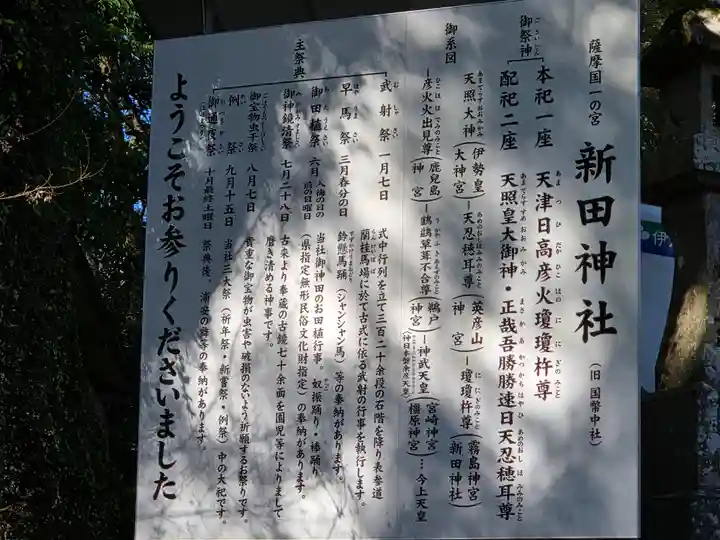 薩摩国一の宮
新田神社
(旧国幣中社)
御祭神
本祀一座 天津日高彦火瓊瓊杵尊
配祀二座 天照皇大御神・正哉吾勝勝速日天忍穂耳尊
御系図
天照大神(伊勢皇大神宮)―天忍穂耳尊(英彦山神宮)―瓊瓊杵尊(霧島神宮 新田神社)
―彦火火出見尊(鹿児島神宮)―鸕鷀草葺不合尊(鵜戸神宮)―神武天皇(宮崎神宮 橿原神宮)…今上天皇
主祭典
武射祭 一月七日 式中行列を立て三百二十余段の石階を降り表参道
蘭桂馬場に於て古式に依る武射の行事を執行します。
早馬祭 三月春分の日 鈴懸馬踊(シャンシャン馬)等の奉納があります。
御田植祭 六月 入梅の日の前の日曜日 当社御神田のお田植行事。奴振踊り・棒踊り
(県指定無形民俗文化財指定)の奉納があります。
御神鏡清祭 七月二十八日 古来より奉蔵の古鏡七十余面を園児等によりまして
磨き清める神事です。
御宝物虫干祭 八月七日 貴重な御宝物が虫害や破損のないよう祈願するお祭りです。
例祭 九月十五日 当社三大祭(祈年祭・新嘗祭・例祭)中の大祀です。
御通夜祭 十月最終土曜日 祭典後、浦安の舞等の奉納があります。
ようこそお参りくださいました